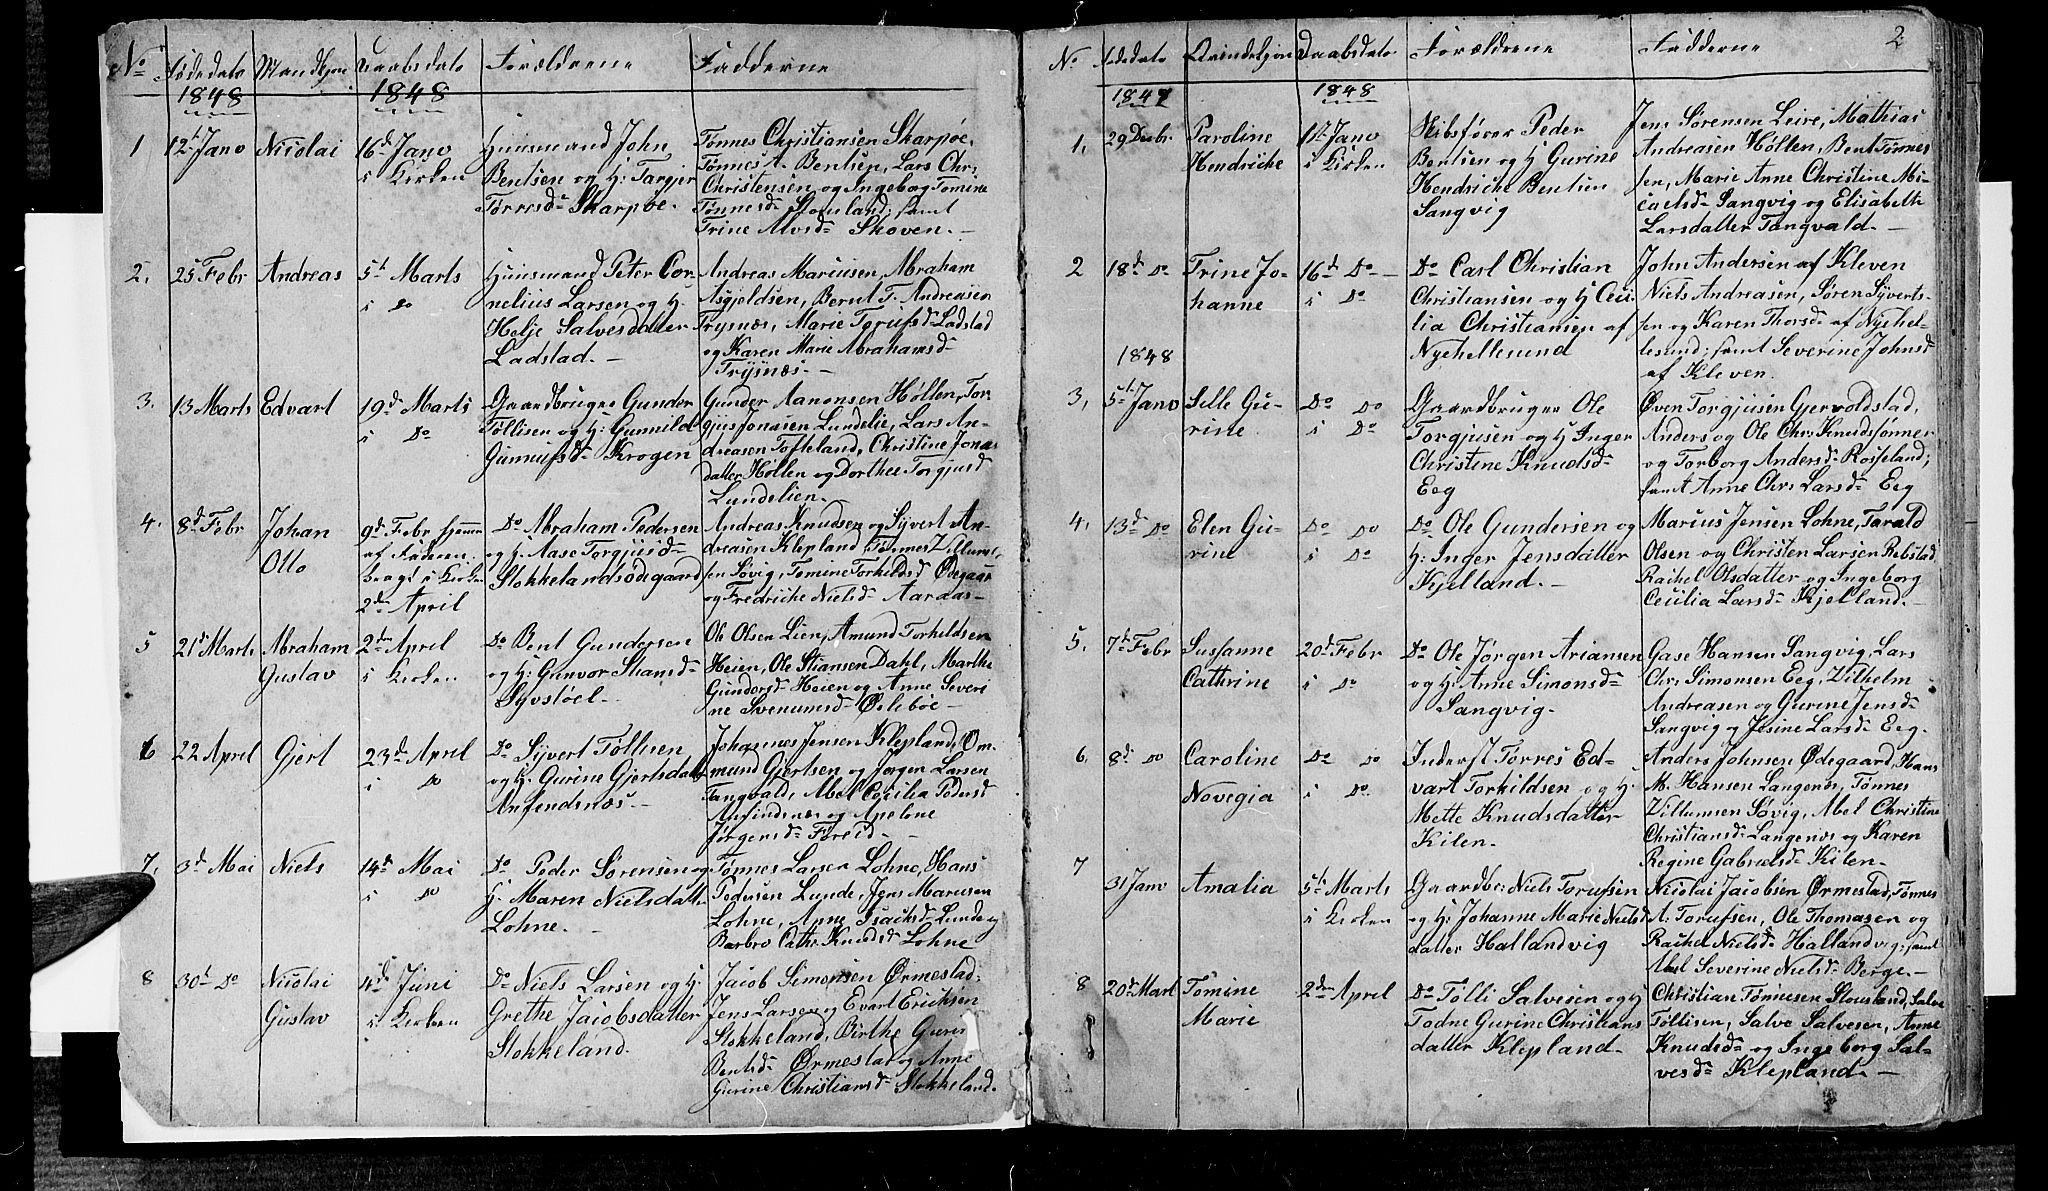 No Fødedato Mandkjøn Daabsdato Forældrene Fadderne
1848 1848
1 12t Janv Nicolai 16d Janv i Kirken
Huusmand John
Bentsen og H: Targjer
Torresd= Skarpøe.
Tønnes Christiansen Skarpøe,
Tønnes A. Bentsen, Lars Chr:
Christensen, og Ingeborg Tomine
Tønnesd= Stousland; samt
Trine Alvsd= Skoven. –
2. 25 Febr Andreas 5t Marts i Do
Huusmand Peter Cor
nelius Larsen og H.
Helje Salvesdatter
Ladstad. –
Andreas Marcusen, Abraham
Asgjeldsen, Bernt T. Andreasen
Trysnæs, Marie Torufsd= Ladstad
og Karen Marie Abrahamsd=
Trysnæs. –
3. 13 Marts Edvart 19d Marts i Do
Gaardbruger Gunder
Tøllisen og H: Gunnild
Gunnufsd= Krogen
Gunder Aanonsen Høllen, Tor
gius Jonasen Lundelie, Lars An
dreasen Tofteland, Christine Jonas
datter Høllen og Dorthee Torgjusd
Lundelien. –
4. 8d Febr Johan Otto
9d Febr hjemme
af Faderen.
bragt i Kirken
2den April
Do Abraham Pedersen
og H: Aase Torgjusd=
Stokkelandsødegaard
Andreas Knudsen og Syvert An
dreasen Klepland, Tønnes Villum
sen Søvig, Tomine Torkildsd Ødegaar
og Fredrikke Nielsd= Aaraas –
5 21d Marts Abraham Gustav 2den April i Kirken
Do Bent Gundersen
og H: Gunvor Stiansd=
Syvstøel.
Ole Olsen Lien, Amund Torkildsen
Heien, Ole Stiansen Dahl, Marthe
Gundersd= Heien og Anne Severi
ne Svenumsd= Øslebøe –
6 22 April Gjert 23d April i Do
Do Syvert Tøllisen
og H: Gurine Gjertsdatt
Anfendsnæs. –
Johannes Jensen Klepland, Om
mund Gjertsen og Jørgen Larsen
Tangvald, Abel Cecilia Pedersd
Anfindsnæs og Apelone
Jørgensd= Føreid –
7. 3d Mai Niels 14de Mai i Do
Do Peder Sørensen og
H. Maren Nielsdatt
Lohne. –
Tønnes Larsen Lohne, Hans
Pedersen Lunde, Jens Marcusen
Lohne, Anne Isachsd= Lunde og
Barbro Cath: Knudsd= Lohne
8 30t Do Nicolai Gustav 4de Juni i Kirken
Do Niels Larsen og H:
Grethe Jacobsdatter
Stokkeland.
Jacob Simonsen Ørmestad,
Jens Larsen og Evart Ericksen
Stokkeland, Birthe Gurine
Bentsd= Ørmestad og Anne
Gurine Christiansd= Stokkeland.
2
No Fødedato Qvindekjøn Daabsdato Forældrene Fadderne
1847 1848
1. 29 Decbr. Paroline Hendricke 1st Janv i Kirken
Skibsfører Peder
Bentsen og H Gurine
Hendricke Bentsen
Sangvig
Jens Sørensen Leire, Mathias
Andreasen Høllen, Bent Tønnes
sen, Marie Anne Christine Mi
caelsd= Sangvig og Elisabeth
Larsdatter Tangvald. –
2 18d Do Trine Jo
hanne 16d Do – i Do
Do Carl Christian
Christiansen og H Ceci
lia Christiansen af
Nyehellesund
John Andersen af Kleven
Niels Andreasen, Søren Syverts
sen og Karen Thorsd= af Nyehel
lesund; samt Severine Johnsd
af Kleven.
1848
3, 5t Janv Sille Gu-
rine. Do Do i Do
Gaardbruger Ole
Torgjusen og H Inger
Christine Knudsd=
Eeg
Øven Torgjusen Gjervoldstad,
Anders og Ole Chr: Knudssønner
og Torborg Andersd= Rosseland;
samt Anne Chr: Larsd= Eeg
4. 13d Do Elen Gu-
rine Do Do i Do
Do Ole Gundersen og
H: Inger Jensdatter
Kjelland. –
Marcus Jensen Lohne, Tarald
Olsen og Christen Larsen Rebstad,
Rachel Olsdatter og Ingeborg
Cecilia Larsd= Kjelland. –
5. 7d Febr Susanne Cathrine 20d Febr i Do
Do Ole Jørgen Ariansen
og H: Anne Simonsd=
Sangvig.
Gase Hansen Sangvig, Lars
Chr: Simonsen Eeg, Vilhelm
Andreasen og Gurine Jensd=
Sangvig og Jesine Larsd= Eeg.
6. 8d Do Caroline Novegia Do Do i Do
Inderst Tørres Ed-
vart Torkildsen og H.
Mette Knudsdatter
Kilen.
Anders Johnsen Ødegaard, Hans
M. Hansen Langenæs, Tønnes
Villumsen Søvig, Abel Christine
Christiansd= Langenæs og Karen
Regine Gabrielsd= Kilen –
7 31 Janv Amalia 5t Marts i Kirken
Gaardbr: Niels Torufsen
og H: Johanne Marie Niels
datter Hallandvig
Nicolai Jacobsen Ørmestad, Tønnes
A. Torufsen, Ole Thomasen og
Rachel Nielsd= Hallandvig; samt
Abel Severine Nielsd= Berge. –
8 20d Mart Tomine Marie 2den April
Do Tølli Salvesen og H
Todne Gurine Christians
datter Klepland –
Christian Tønnesen Stousland, Salve
Tøllisen, Salve Salvesen, Anne
Knudsd= og Ingeborg Sal-
vesd= Klepland. –